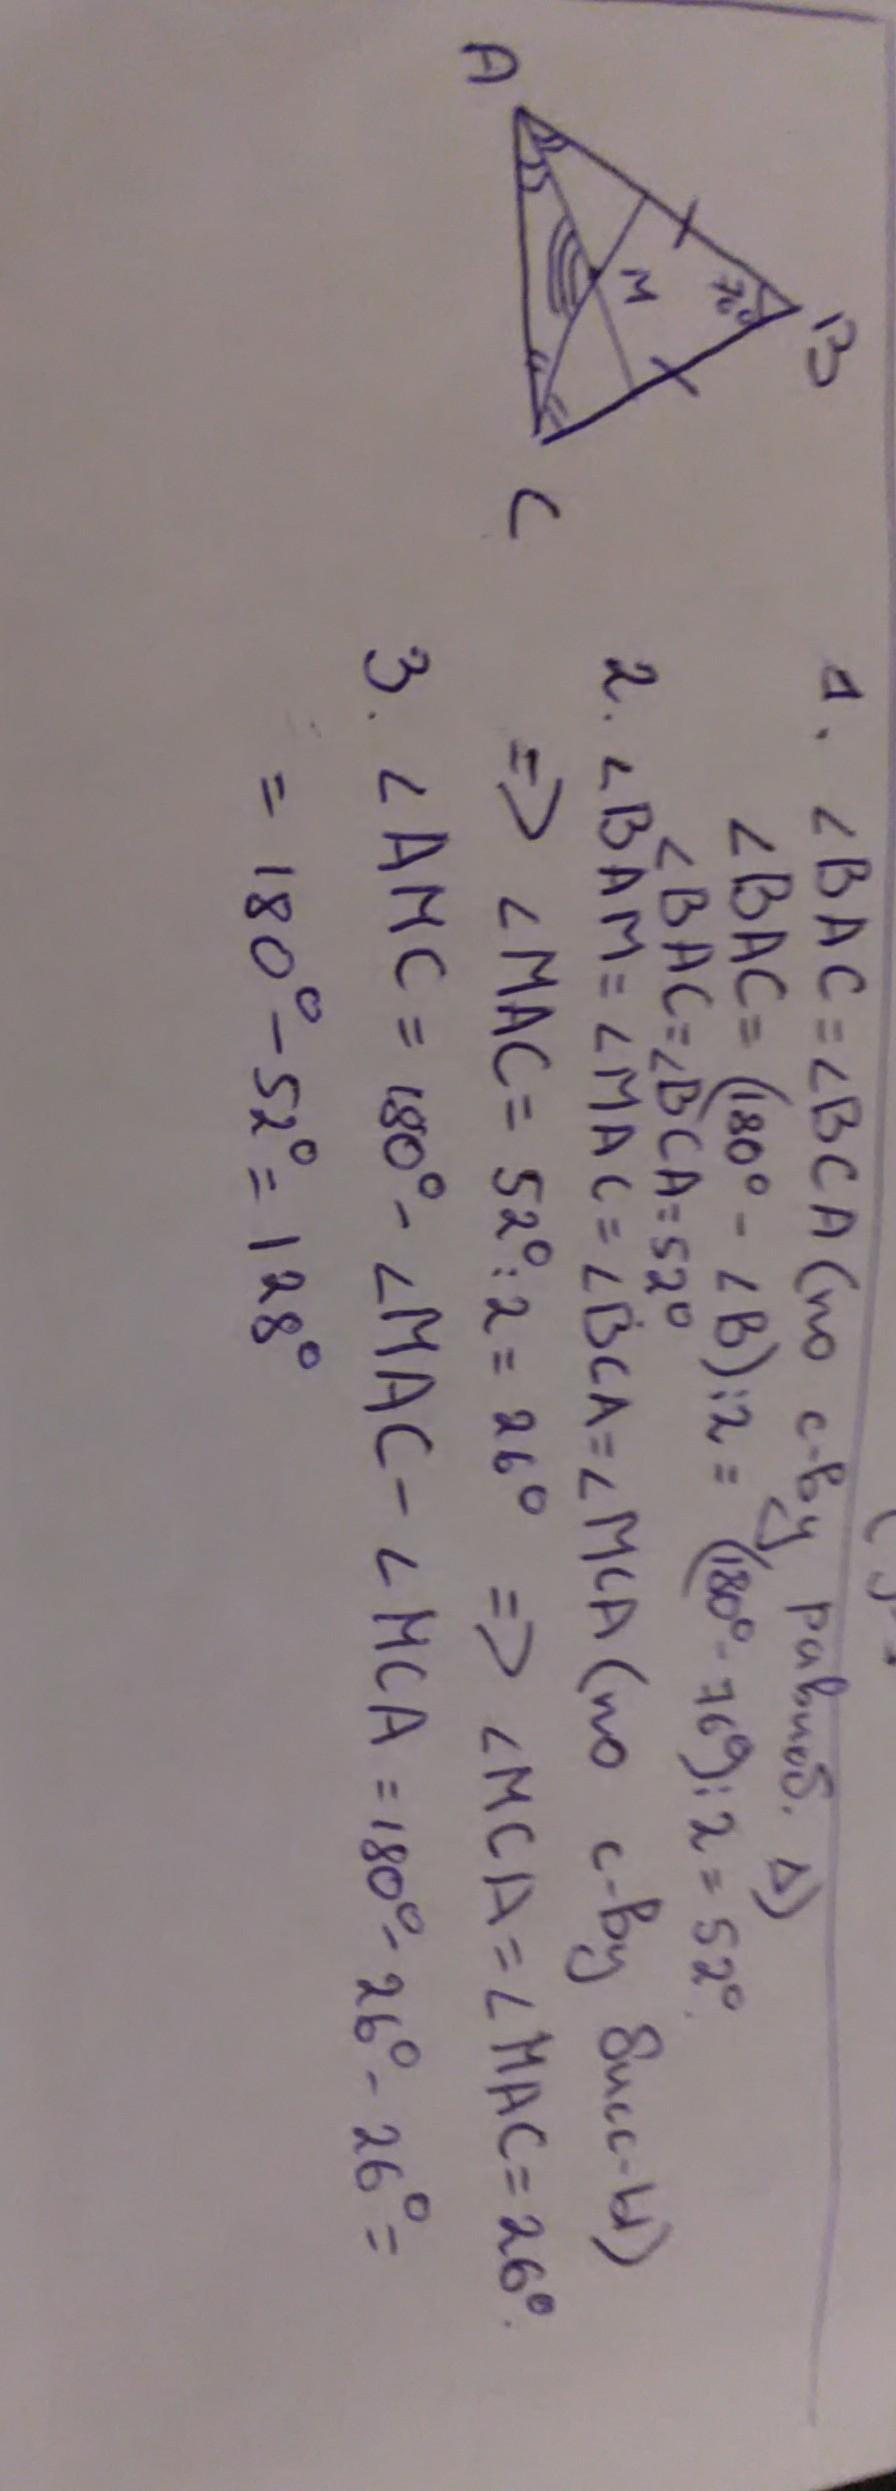 A
B
C
M
76°
1. ∠BAC = ∠BCA (по с-ву равноб. Δ)
∠BAC = (180° - ∠B) : 2 = (180° - 76°) : 2 = 52°.
∠BAC = ∠BCA = 52°
2. ∠BAM = ∠MAC = ∠BCA = ∠MCA (по с-ву бисс-ы)
=> ∠MAC = 52° : 2 = 26° => ∠MCA = ∠MAC = 26°.
3. ∠AMC = 180° - ∠MAC - ∠MCA = 180° - 26° - 26° =
= 180° - 52° = 128°